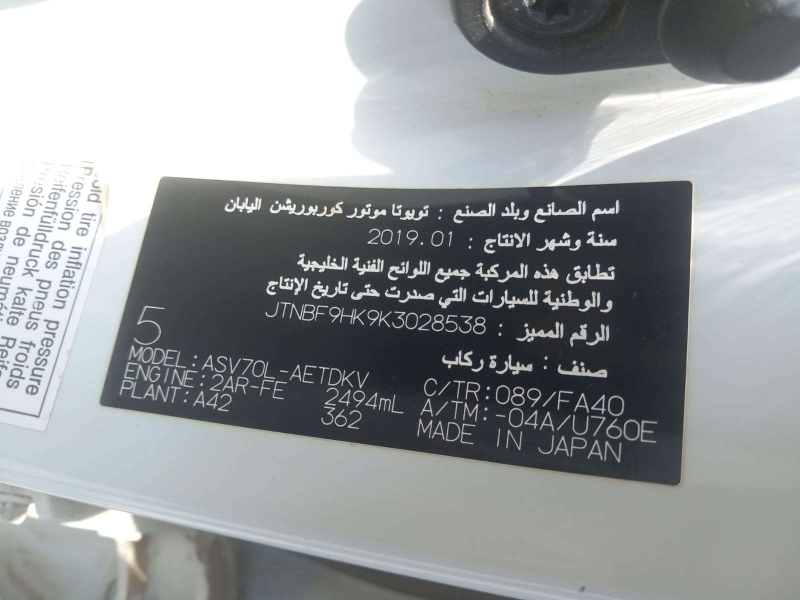 اسم الصانع وبلد الصنع : تويوتا موتور كوربوريشن اليابان
سنة وشهر الانتاج : 2019.01
تطابق هذه المركبة جميع اللوائح الفنية الخليجية
والوطنية للسيارات التي صدرت حتى تاريخ الإنتاج
الرقم المميز : JTNBF9HK9K3028538
صنف : سيارة ركاب
5
MODEL:ASV70L-AETDKV C/TR:089/FA40
ENGINE:2AR-FE 2494mL A/TM:-04A/U760E
PLANT:A42 362 MADE IN JAPAN
tire inflation pressure
pression des pneus froids
Reifenfülldruck kalte Reife
de neumáti